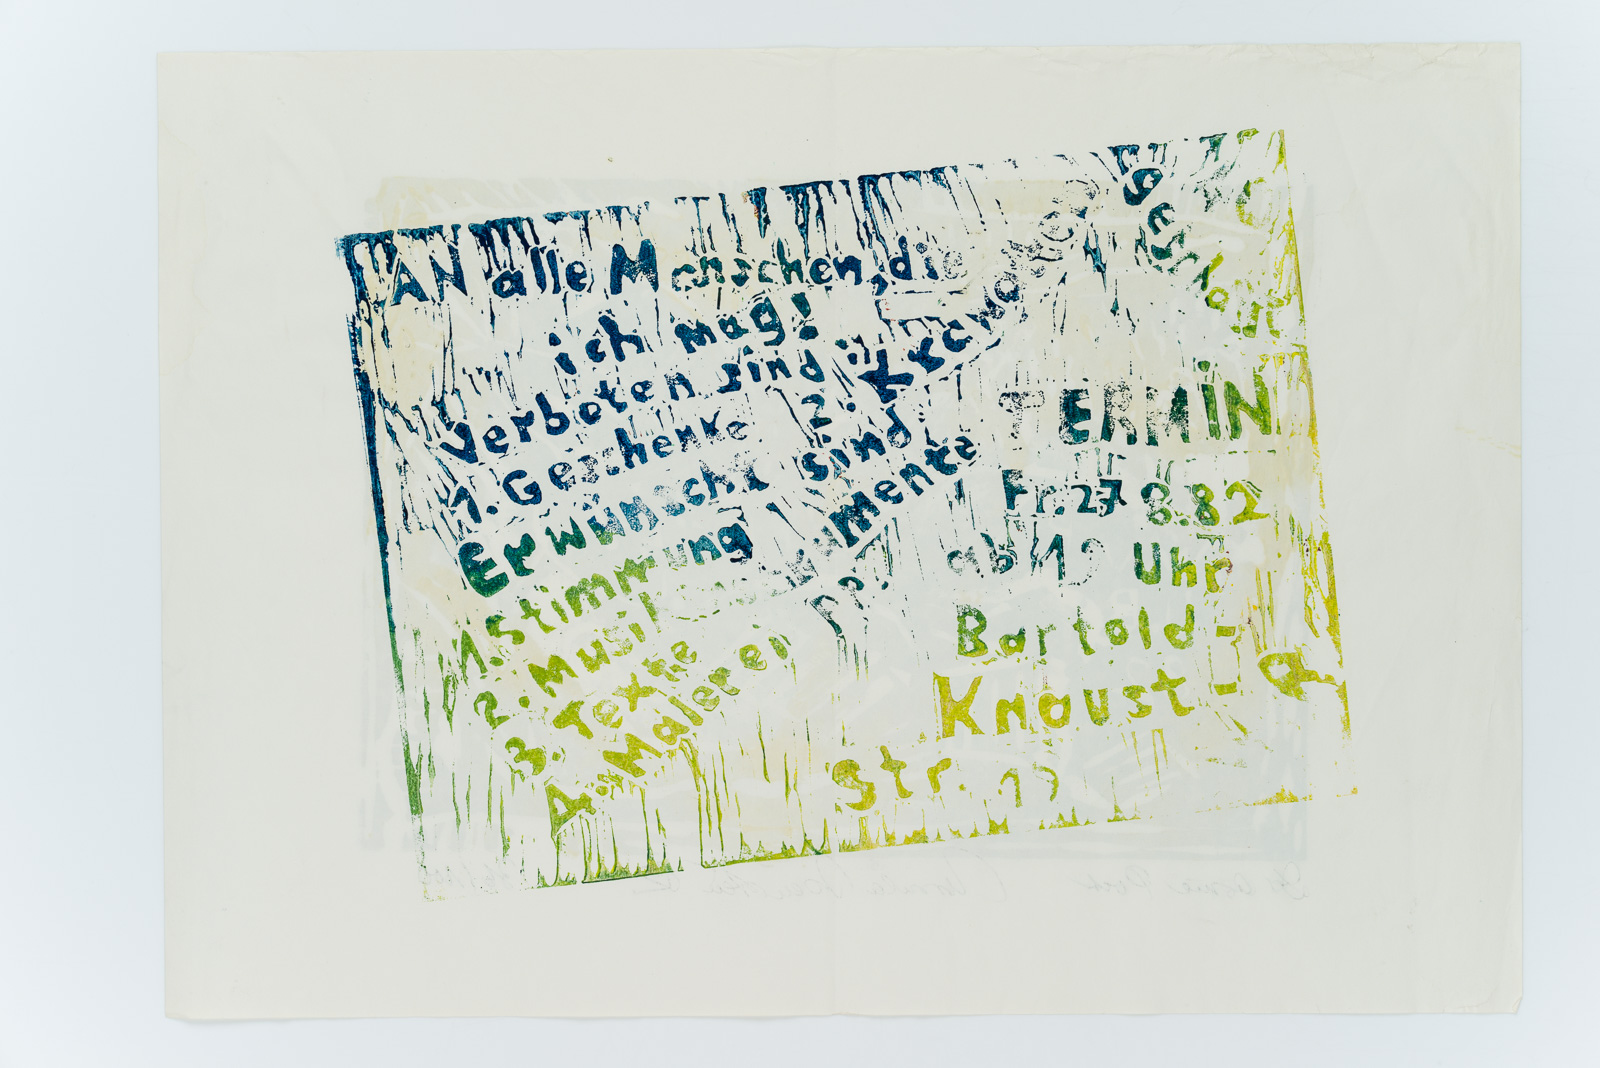 AN alle Menschen, die
ich mag!
Verboten sind:
1. Geschenke 2. Krawatten
Erwünscht sind
1. Stimmung
2. Musikinstrumente
3. Texte
4. Malerei pp.
TERMIN
Fr. 27 8.82
ab 19 Uhr
Bartold-
Knaust-
Str. 19